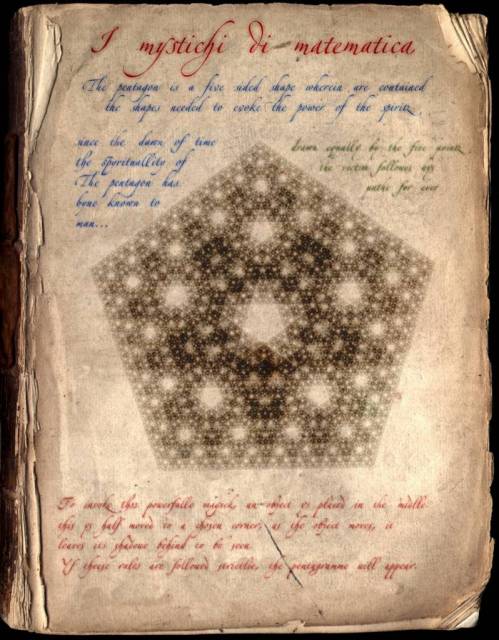 I mystichi di matematica
The pentagon is a five sided shape wherein are contained
the shapes needed to evoke the power of the spirits.
since the dawn of time
the spyrituallity of
The pentagon has
byne known to
man...
drawn equally by the five points
the vector follows any
paths for ever
To invoke thys powerfulle magick, an object ys placed in the midlle
thys ys half moved to a chosen corner, as the object moves, it
leaves its shadowe behind to be seen.
Yf theese rules are followed the pentagramme will appear.